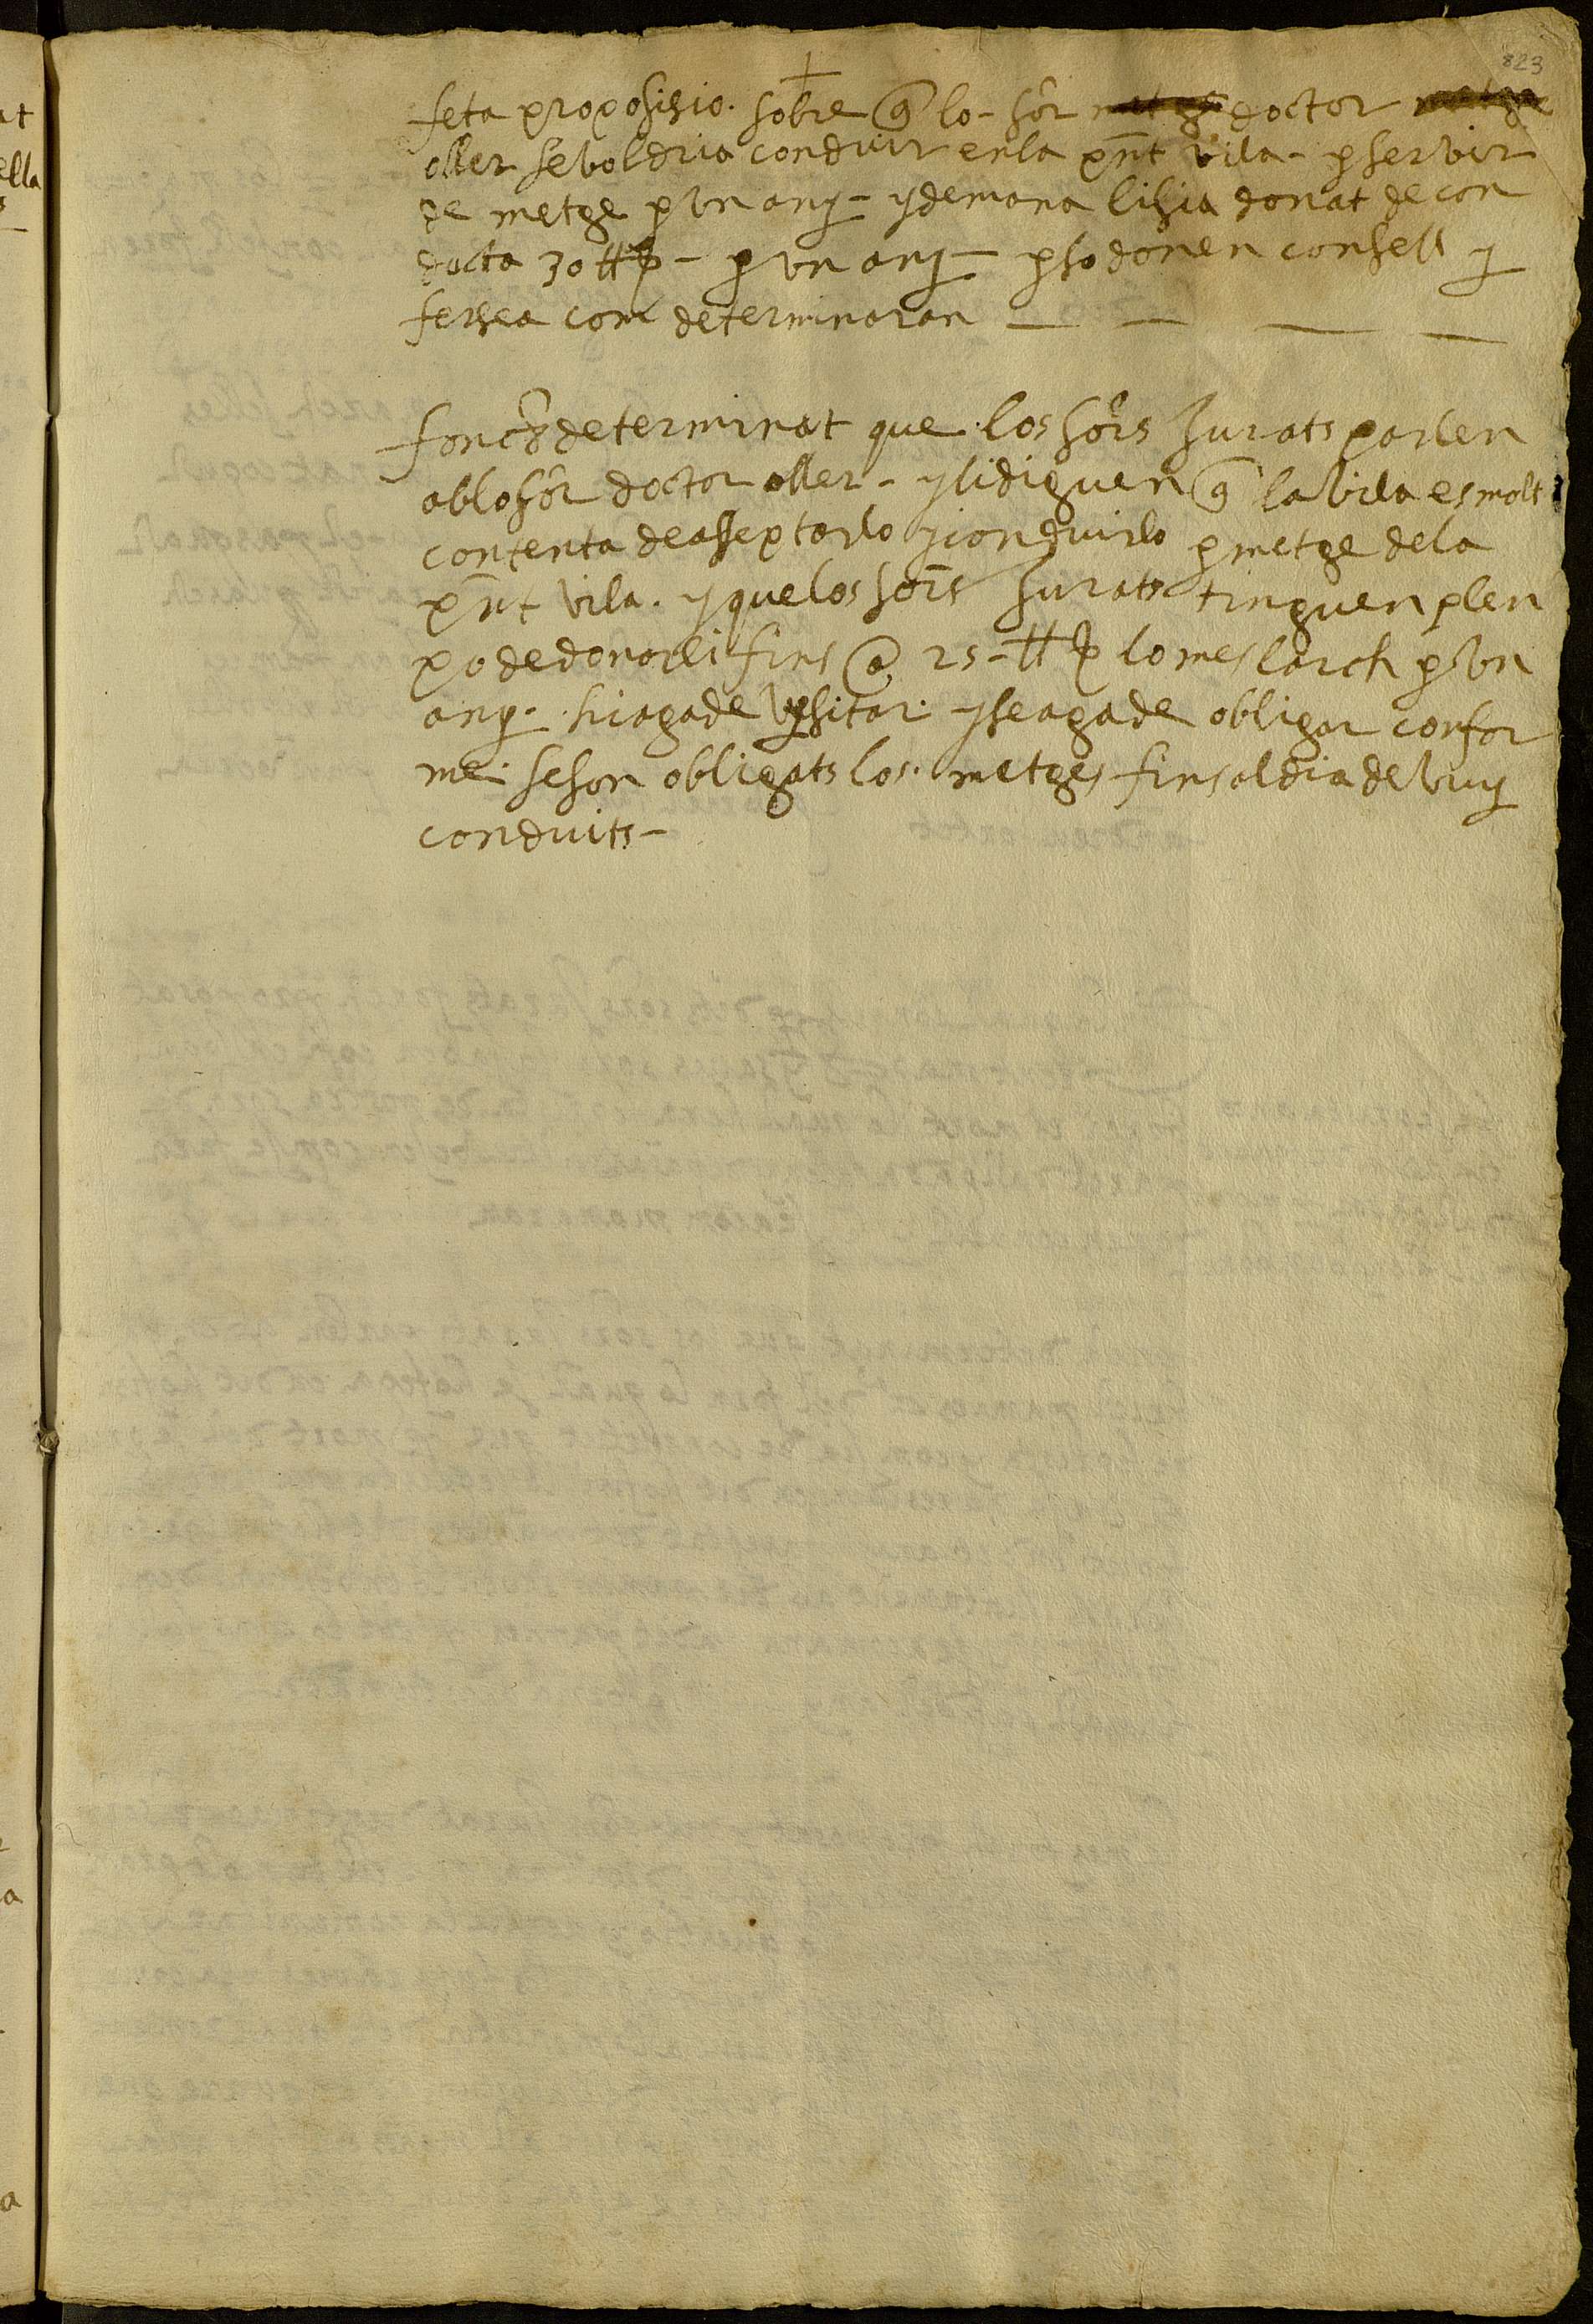 823
feta proposisio. sobre q̃ lo - sor̃ metge doctor metge
oller sevoldria conduir enla pñt vila - p servir
de metge p vn any - y demana lisia donat de con
ducta 30 ₶ - p vn any - p so donen consell y
fersea com determinaran — — — —
fonch determinat que los sor̃s Jurats parlen
ablo sor̃ doctor oller - y lidiguen q̃ la vila es molt
contenta de asseptarlo y conduirlo p metge dela
pñt vila. y que los sor̃s Jurats tinguen plen
po de donarli fins a 25 - ₶ lo mes larch p vn
any. hiagade vysitar. yseagade obligar confor
me. seson obligats los. metges fins al dia de vuy
conduits -